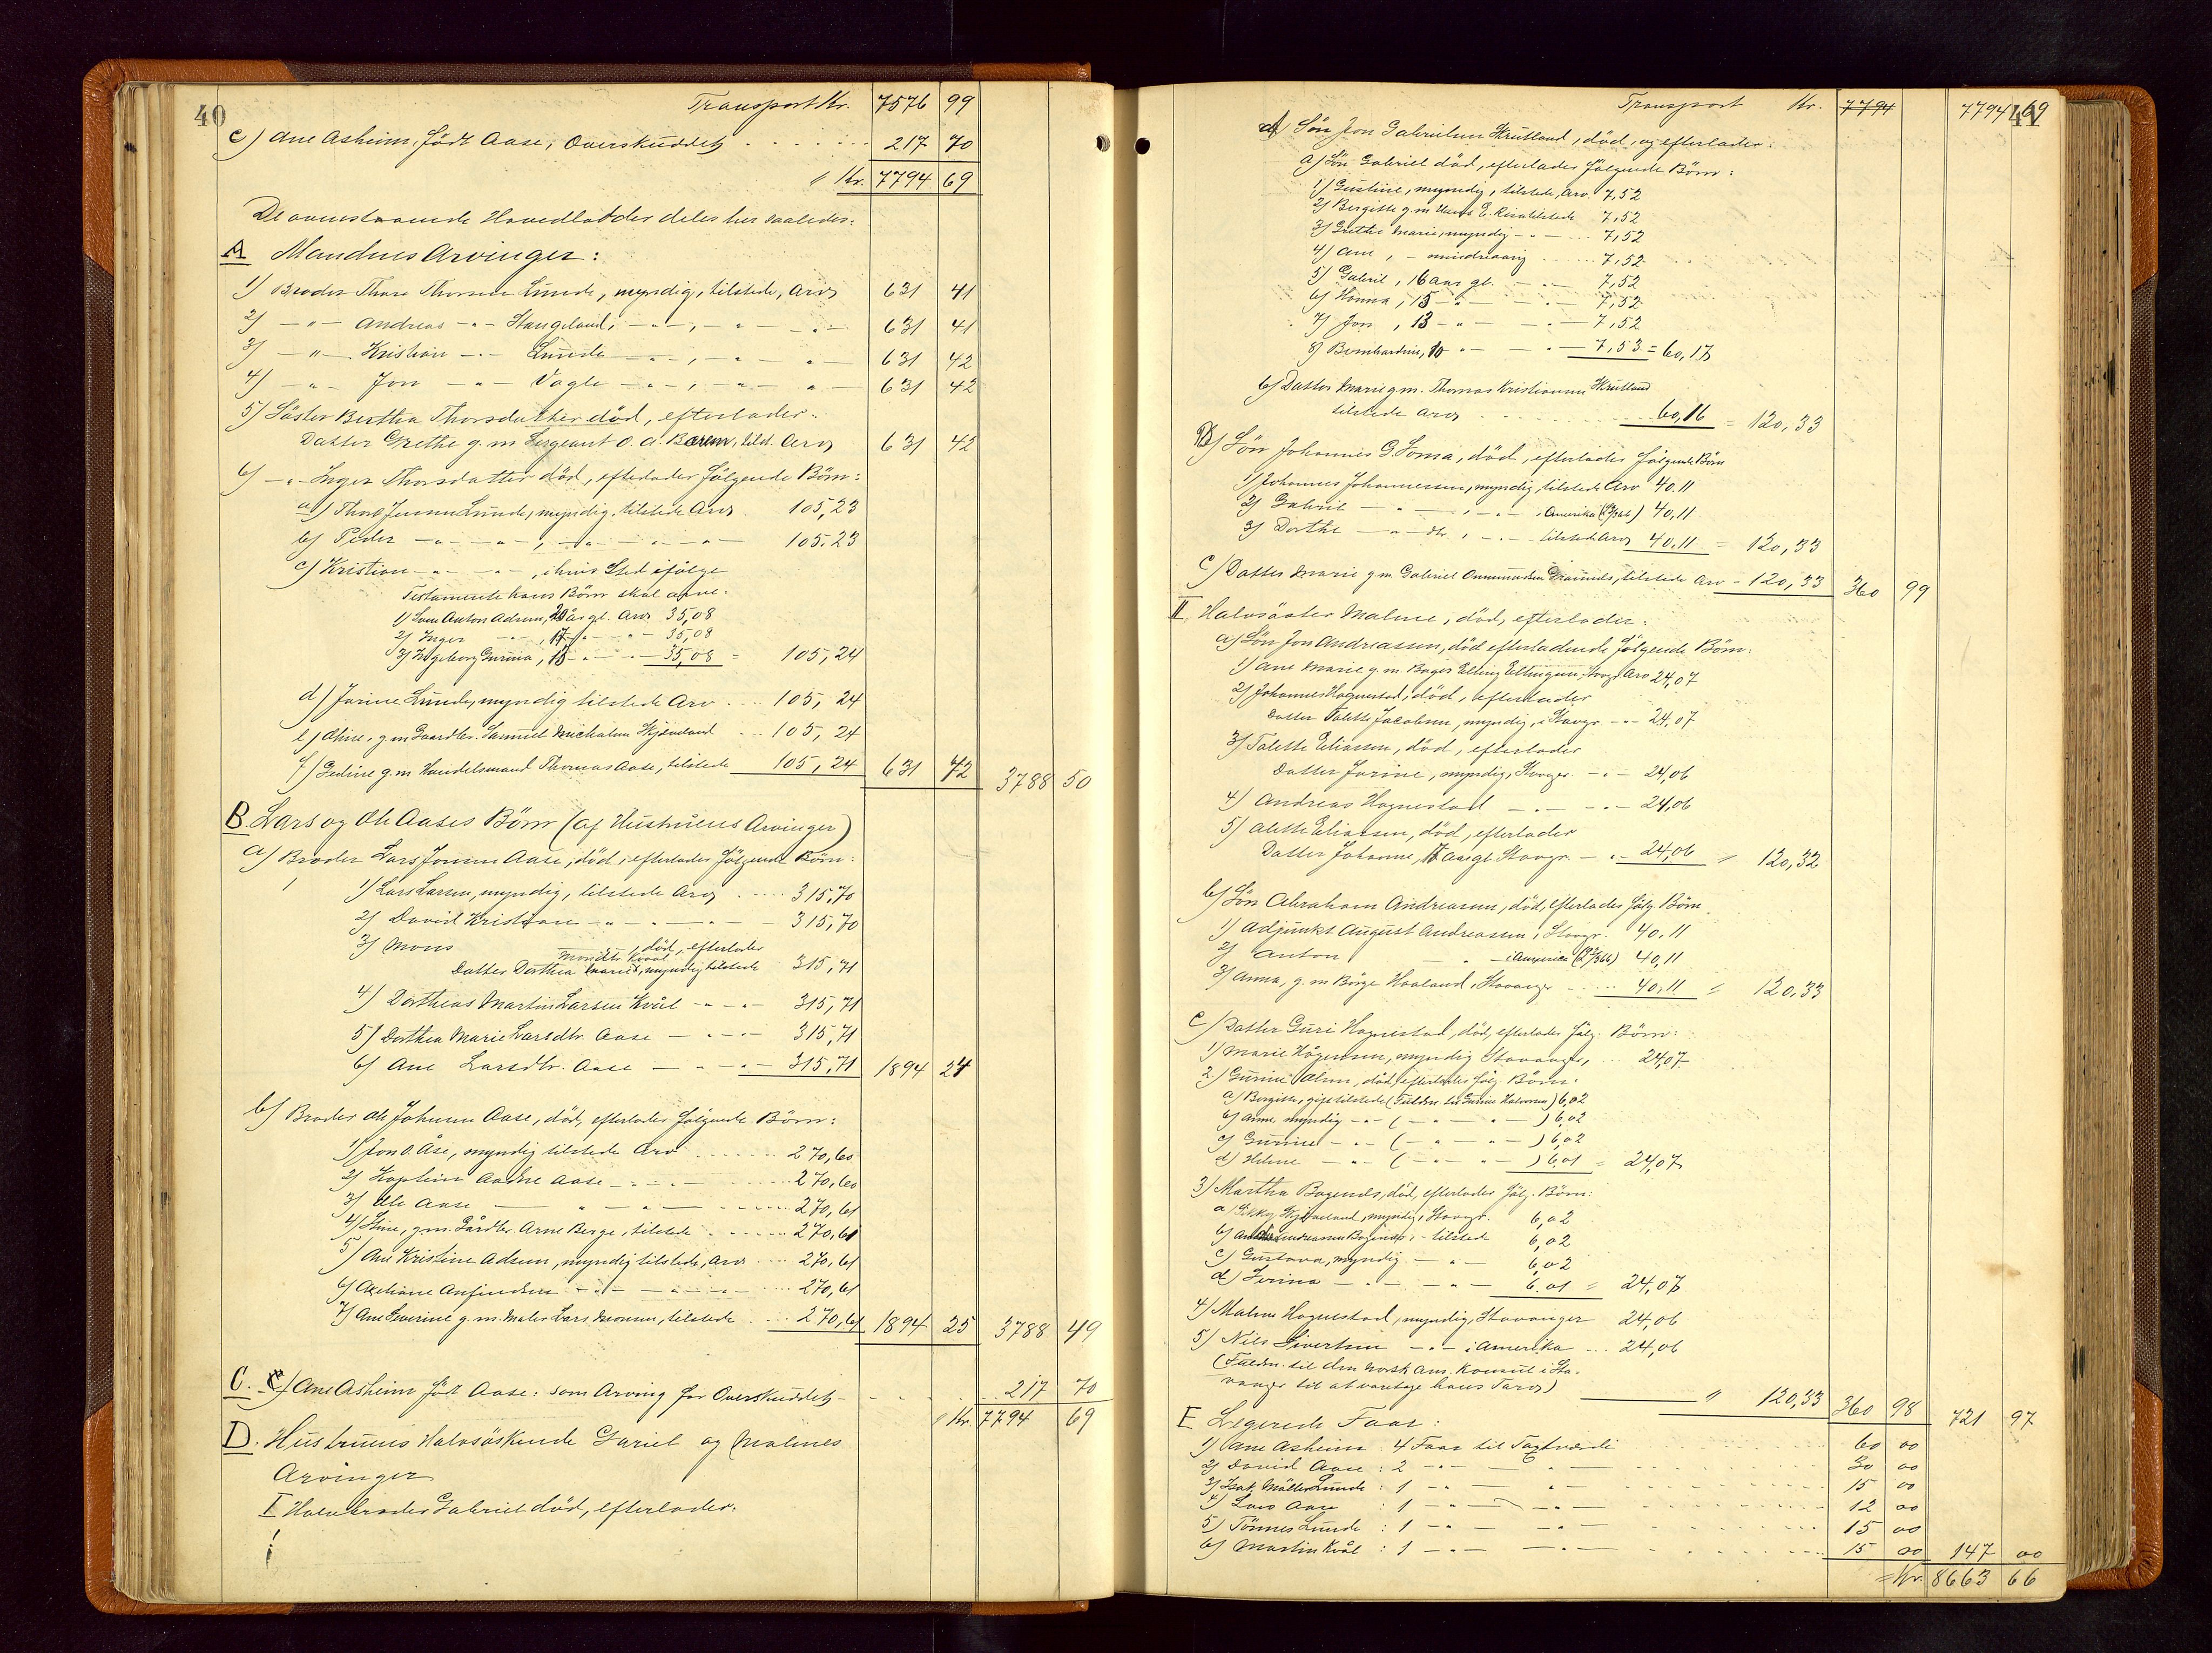 40
Transport Kr. 7576 99
c) Ane Asheim, født Aase, Overskuddet 217 70
Kr. 7794 69
De ovenstaaende Hovedlodder deles her saaledes:
A Mandens Arvinger:
1) Broder Thore Thorsen Lunde, myndig, tilstede, Arv 631 41
2) — " — Andreas — " — Stangeland, — " —, — " — — " — 631 41
3) — " — Kristian — " — Lunde — " —, — " — — " — 631 42
4) — " — Jon — " — Vagle — " —, — " — — " — 631 42
5) Søster Berthe Thorsdatter død, efterlader:
Datter Grethe g. m. Sergeant O. A. Barem, tilst. Arv 631 42
6) — " — Inger Thorsdatter død, efterlader følgende Børn:
a) Thore Jensen Lunde, myndig, tilstede Arv 105,23
b) Peder — " — — " —, — " — — " — 105,23
c) Kristian — " — — " —, i hvis Sted ifølge
Testamente hans Børn skal arve:
1) Sven Anton Adsen, 20 år gl. Arv 35,08
2) Inger — " —, 17 — " — — " — 35,08
3) Ingeborg Gurina, 15 — " — — " — 35,08 = 105,24
d) Jorine Lunde, myndig tilstede Arv 105,24
e) Oline, g m Gaardbr. Samuel Michalsen Skjæveland 105,24
f) Gedine g. m Handelsmand Thomas Aase, tilstede 105,24 631 72 3788 50
B. Lars og Ole Aases Børn (af Hustruens Arvinger)
a) Broder Lars Jonsen Aase, død, efterlader følgende Børn:
1) Lars Larsen, myndig, tilstede Arv 315,70
2) David Kristian — " — — " — 315,70
3) Mons, død, efterlader
Datter Dorthea Marie Monsdtr. Kvål, myndig tilstede 315,71
4) Dortheas Martin Larsen Kvål — " — 315,71
5) Dorthea Marie Larsdtr. Aase — " — 315,71
6) Ane Larsdtr. Aase — " — — " — 315,71 1894 24
b) Broder Ole Johnsen Aase, død, efterlader følgende Børn:
1) Jon O. Åse, myndig tilstede Arv 270,60
2) Kaptein Aadne Aase — " — 270,60
3) Ole Aase — " — — " — 270,61
4) Stine, g. m. Gårdbr. Arne Berge, tilstede 270,61
5) Ane Kristine Adsen, myndig tilstede, Arv 270,61
6) Axeliane Anfindsen — " — — " — 270,61
7) Ane Severine g. m. Maler Lars Monsen, tilstede 270,61 1894 25 3788 49
C. Ane Asheim født Aase: som Arving for Overskuddet — 217 70
Kr. 7794 69
D. Hustruens Halvsøskende Gariel og Malenes
Arvinger
I Halvbroder Gabriel død, efterlader:
41
Transport Kr. 7794 7794 69
a) Søn Jon Gabrielsen Skrutland, død, og efterlader:
a) Søn Gabriel død, efterlader følgende Børn:
1) Gustine, myndig, tilstede, Arv 7,52
2) Bergitte g. m Hans E. Risa tilstede 7,52
3) Grethe Marie, myndig — " — 7,52
4) Ane, — mindreaarig 7,52
5) Gabriel, 16 aar gl. — " — 7,52
6) Hanna, 15 — " — — " — 7,52
7) Jon, 13 — " — — " — 7,52
8) Bernhardine, 10 — " — — " — 7,53 = 60,17
b) Datter Marie g m. Thomas Kristiansen Skrutland
tilstede Arv 60,16 = 120,33
b) Søn Johannes G. Soma, død, efterlader følgende Børn
1) Johannes Johannessen, myndig tilstede Arv 40.11
2) Gabriel — " — — " — i Amerika 40,11
3) Dorthe — " — dtr., — " — tilstede Arv 40.11 = 120,33
c) Datter Marie g m. Gabriel Ommundsen, tilstede Arv — 120,33 360 99
II. Halvsøster Malene, død, efterlader:
a) Søn Jon Andreassen, død efterladende følgende Børn:
1) Ane Marie g. m. Bager Elling Ellingsen, Stavgr. Arv 24,07
2) Johannes Hognestad, død, efterlader
Datter Talette Jacobsen, myndig, i Stavgr. — " — 24,07
3) Talette Eliassen, død, efterlader
Datter Jorine, myndig, Stavgr. — " — 24,06
4) Andreas Hognestad — " — — " — 24,06
5) Alette Eliassen, død, efterlader
Datter Johanne, 17 aar gl. Stavgr. — " — 24,06 = 120,32
b) Søn Abraham Andreasen, død, efterlader følg. Børn.
1) Adjunkt August Andreassen, Stavgr. 40.11
2) Anton — " — i Amerika 40,11
3) Anna, g. m Børge Haaland, Stavanger 40,11 = 120,33
c) Datter Guri Hognestad, død, efterlader følg. Børn:
1) Marie Hågensen, myndig Stavanger, 24,07
2.) Gurine Olsen, død, efterlader følg. Børn:
a) Bergitte, gift tilstede (Fuldm. til Gurine Halvorsen) 6,02
b) Anne, myndig — " — ( — " — — " — ) 6,02
c) Gurine — " — ( — " — — " — ) 6,02
d) Helene — " — ( — " — — " — ) 6,01 = 24,07
3) Martha Bogends, død, efterlader følg. Børn:
a) Sikky Skjæveland, myndig, Stavgr. 6,02
b) Andreassen, — tilsted 6,02
c) Gustava, myndig — " — 6,02
d) Serina — " — — " — 6.01 = 24,07
4) Malene Hognestad, myndig, Stavanger 24,06
5) Nils Sivertsen — " — i Amerika 24,06
(Fuldm. til den norsk Am. Konsul i Sta-
vanger til at varetage hans Tarv) 120,33 360 98 721 97
E Legerede Faar:
1) Ane Asheim : 4 Faar til Taxtværdi 60 00
2) David Aase : 2 — " — — " — 30 00
3) Isak Møller Lunde : 1 — " — — " — 15 00
4) Lars Aase : 1 — " — — " — 12 00
5) Tønnes Lunde : 1 — " — — " — 15 00
6) Martin Kvål : 1 — " — — " — 15 00 147 00
= Kr. 8663 66